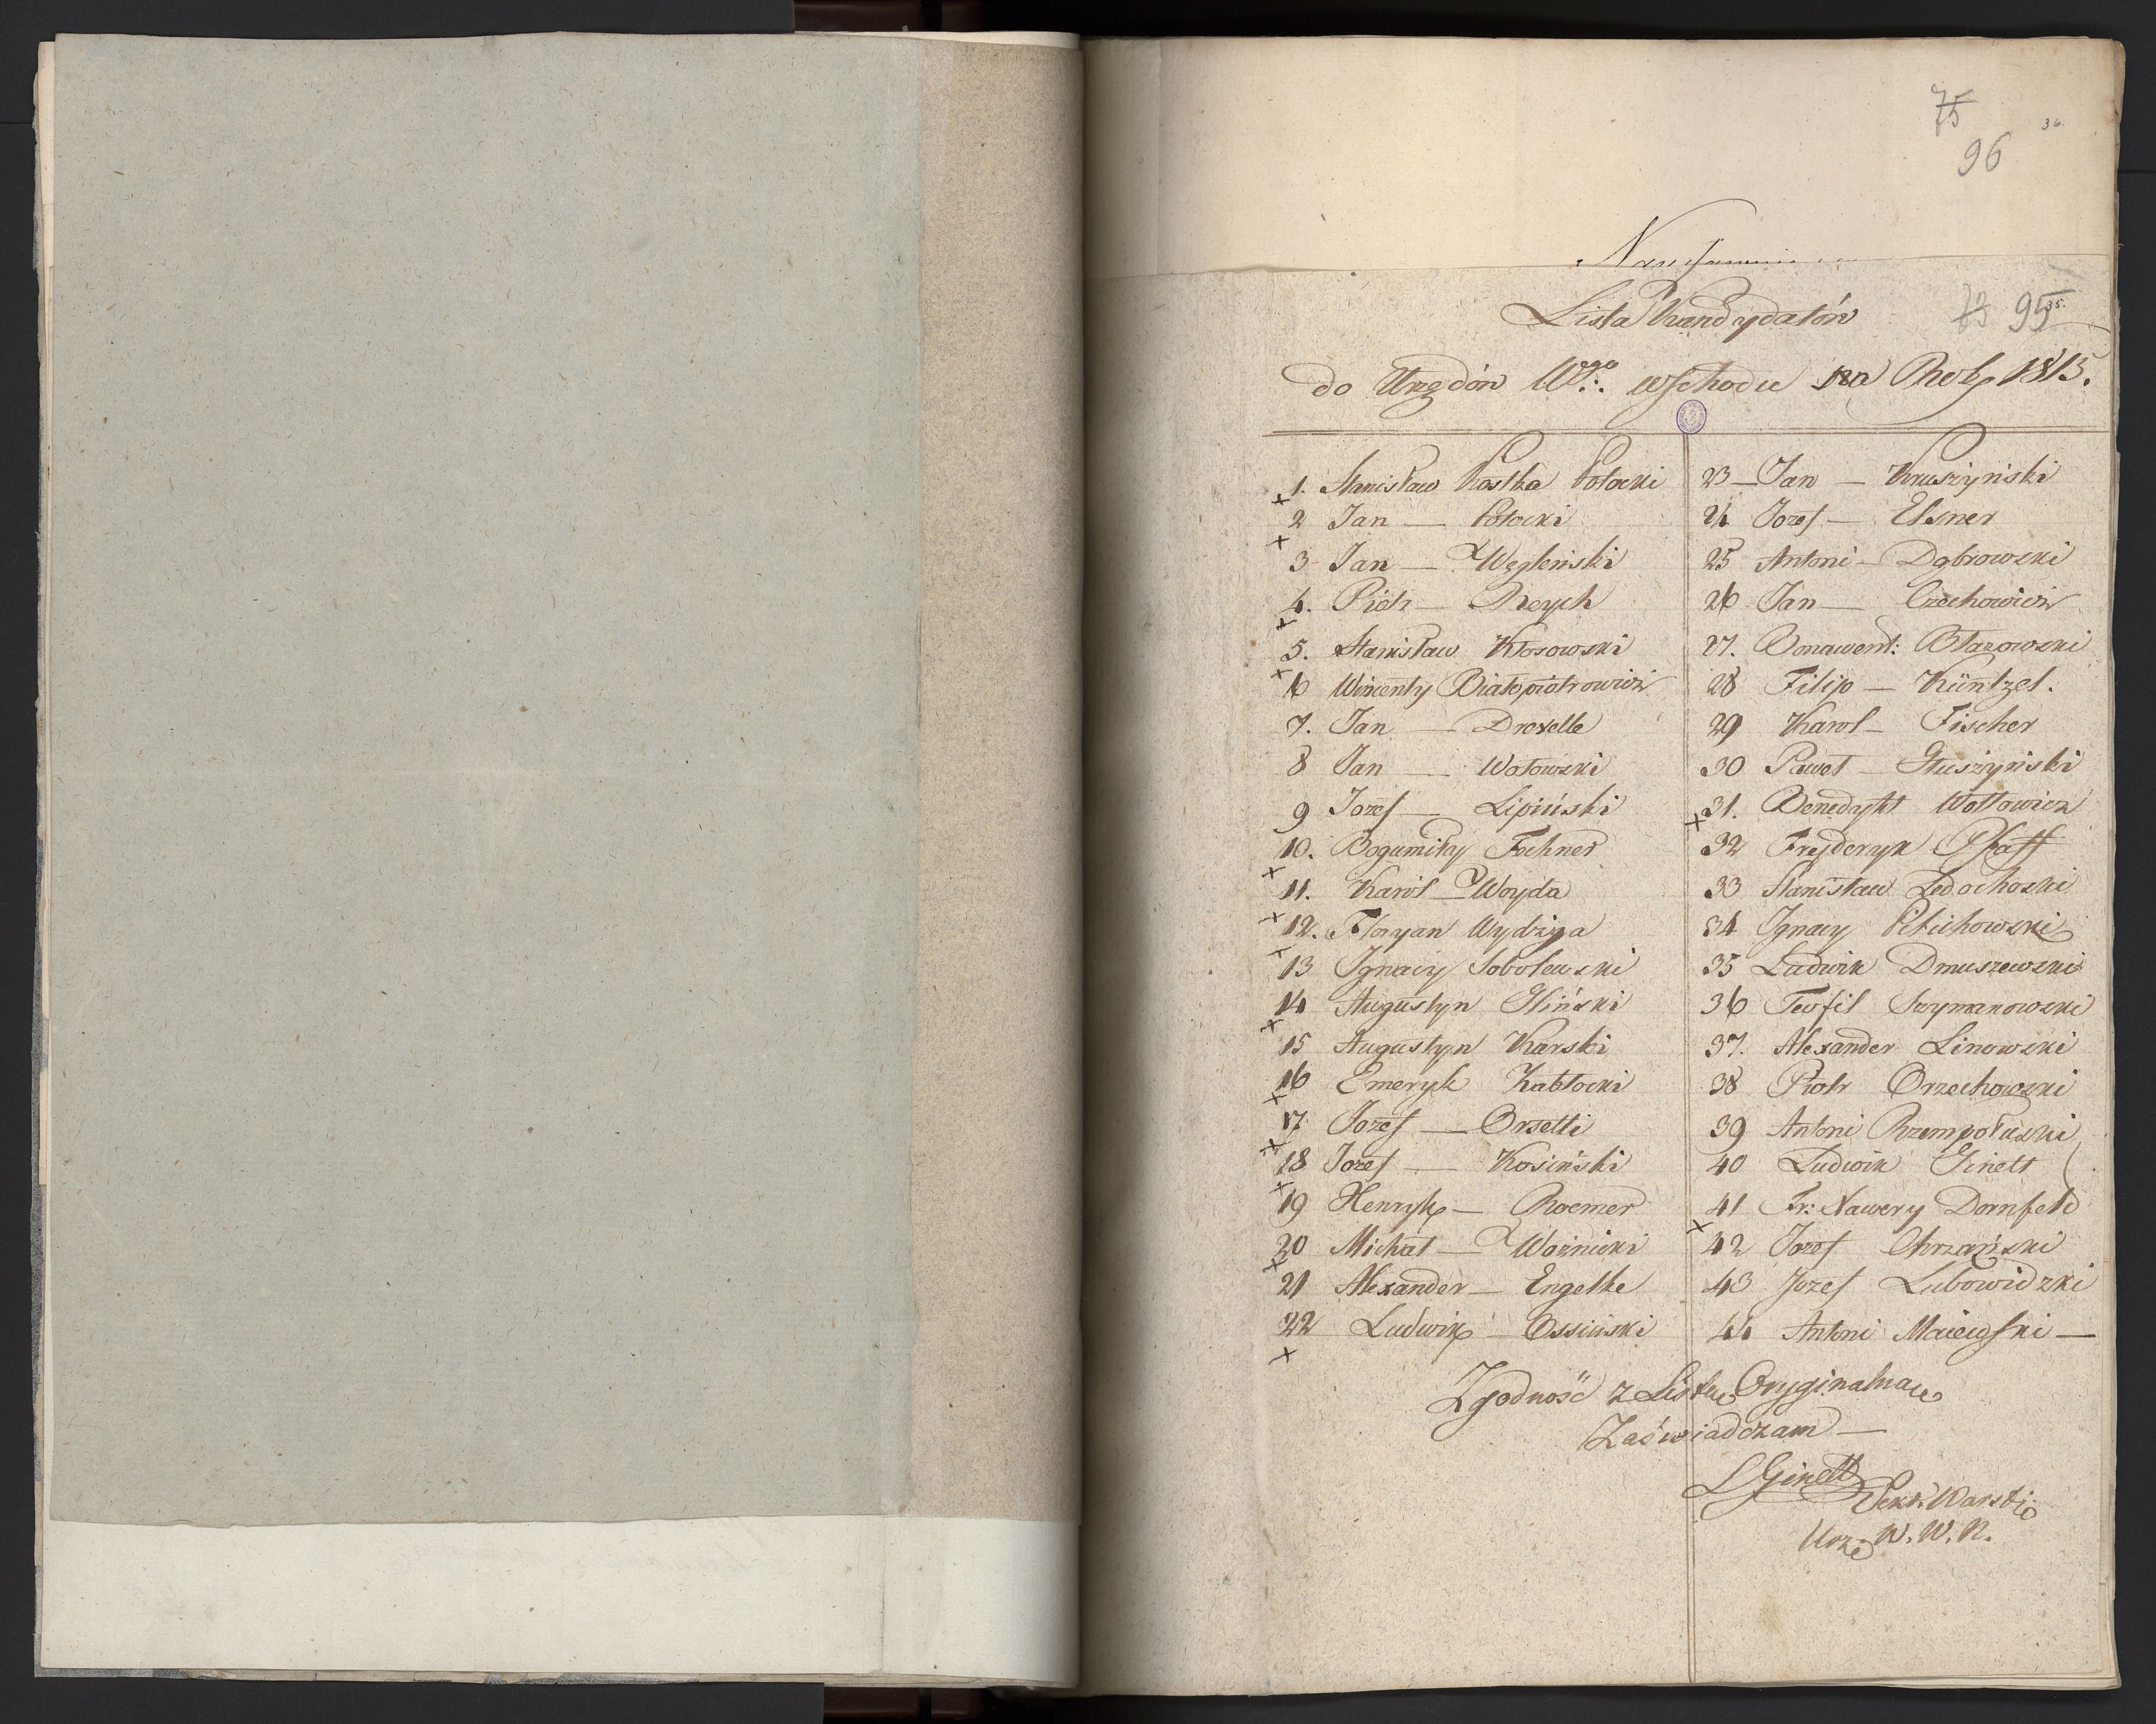 75
36.
96
Lista Kandydatów
73 95 35.
do Urzędón Wgo∴ wschodu na Rok 1815.
1. Stanisław Kostka Potocki
x
2 Jan — Potocki
x
3 Jan — Węgleński
4. Piotr — Reych
x
5. Stanisław Kłosowski
x
6 Wincenty Białopiotrowicz
7. Jan — Drexelle
8 Jan — Wołowski
9 Jozef — Lipiński
10. Bogumiły Fechner
x
11. Karol — Woyda
x
12. Floryan Wydżga
x
13 Ignacy Sobolewski
14 Augustyn Gliński
x
15 Augustyn Karski
16 Emeryk Zabłocki
x
17 Jozef — Orsetti
x
18 Jozef — Kosiński
x
19 Henryk — Roemer
20 Michał — Woźnicki
x
21 Alexander — Engelke
22 Ludwik — Ossiński
x
23 — Jan — Kruszyński
24 Jozef — Elsner
25 Antoni — Dąbrowski
26 Jan — Czechowicz
27. Bonawent: Błazowski
28 Filip — Küntzel.
29 Karol — Fischer
30 Paweł — Głuszyński
31. Benedykt Wołłowicz
x
32 Fryderyk Pfaff
33 Stanisław Ledochoski
34 Ignacy Pilichowski
35 Ludwik Dmuszewski
36 Teofil Szymanowski
37. Alexander Linowski
38 Piotr Orzechowski
39 Antoni Rzempołuski
40 Ludwik Ginett
41 Fr: Xawery Dornfeld
x
42 Jozef Chrzański
43 Jozef Lubowidzki
44 Antoni Maiewski —
Zgodność z Listą Oryginalną
Zaświadczam —
L Ginett
Sekr: Warszt:
Urzę W. W. N.